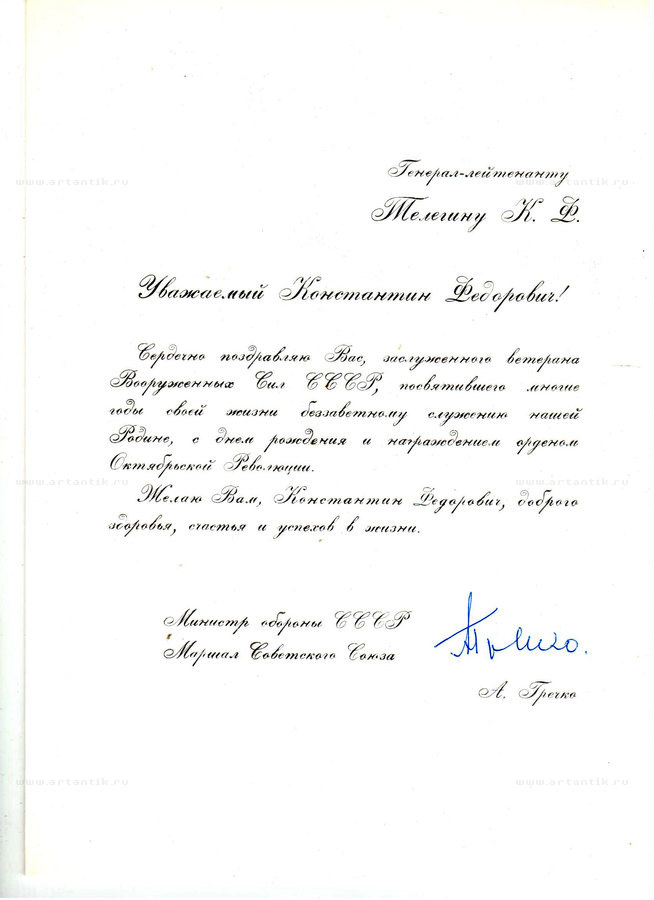 Генерал-лейтенанту
www.artantik.ru www.artantik.ru
Телегину К. Ф.
Уважаемый Константин Федорович!
Сердечно поздравляю Вас, заслуженного ветерана
Вооруженных Сил СССР, посвятившего многие
годы своей жизни беззаветному служению нашей
Родине, с днем рождения и награждением орденом
Октябрьской Революции.
www.artantik.ru www.artantik.ru
Желаю Вам, Константин Федорович, доброго
здоровья, счастья и успехов в жизни.
Министр обороны СССР
Маршал Советского Союза
А. Гречко
www.artantik.ru www.artantik.ru